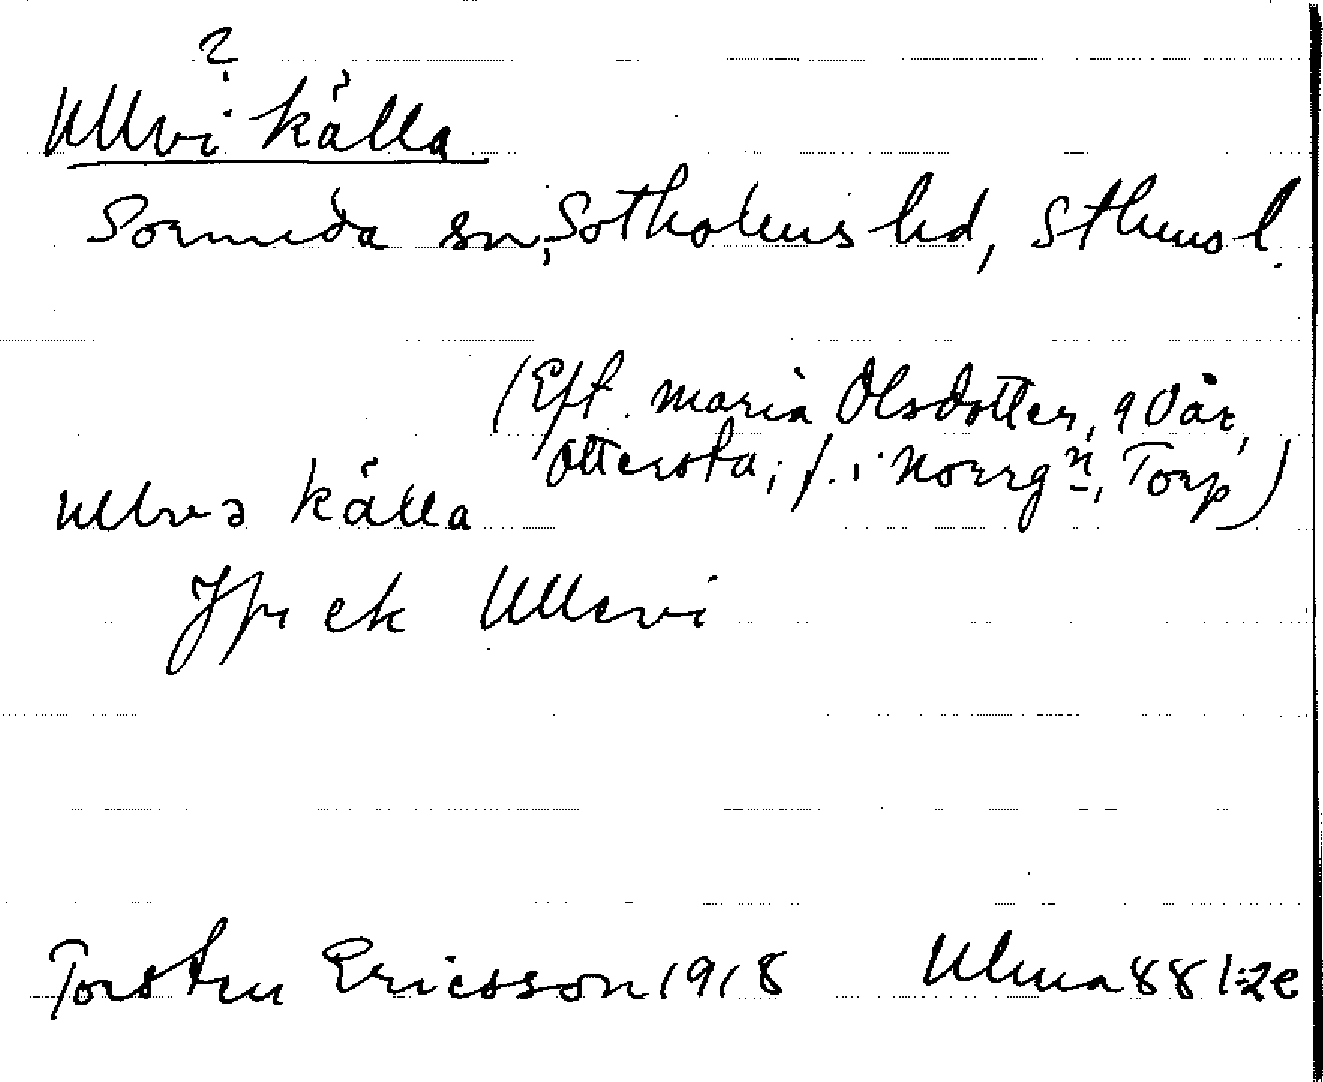 ?
Ullvi källa
Sorunda sn, Sotholms hd, Sthms l.
(Eft. Maria Olsdotter, 90 år,
Ottersta; f. i Norrgn, Torp)
källa
Jfr ek Ullevi
Torsten Ericsson 1918 Ulma 881:2e